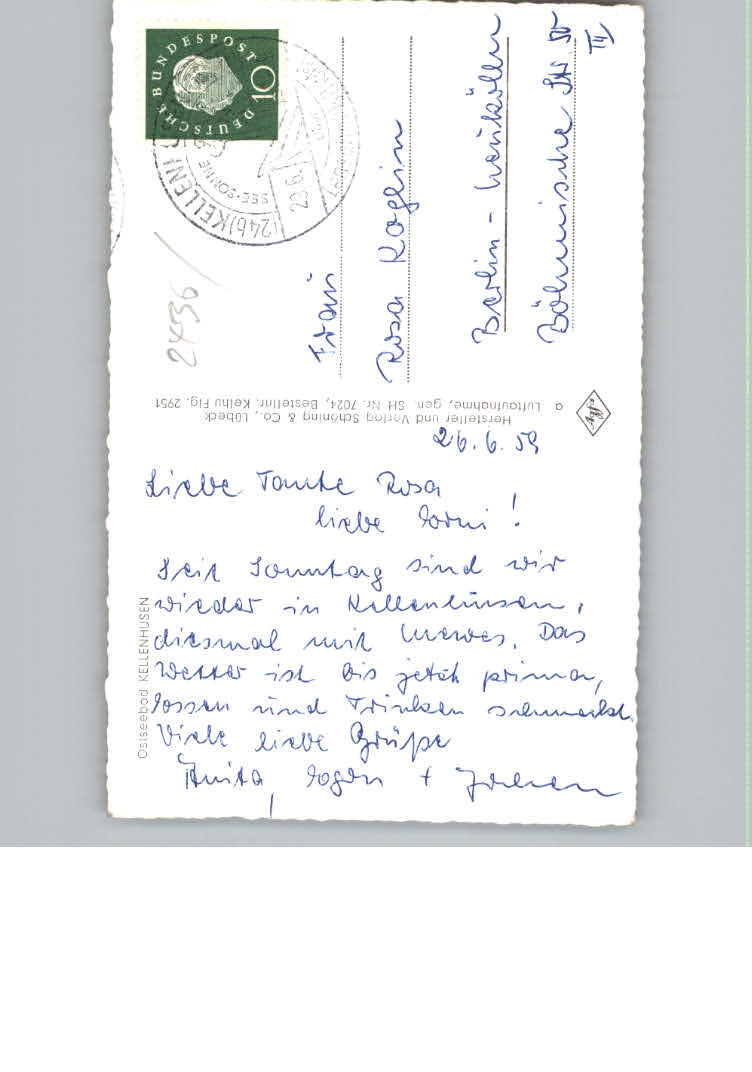 DEUTSCHE BUNDESPOST
10
(24b) KELLENH
SEE · SONNE
Frau
Rosa Koglin
Berlin - Neukölln
Böhmische Str. 50
III
2436
Hersteller und Verlag Schöning & Co., Lübeck
a Luftaufnahme, gen. SH Nr. 7024, Bestellnr. Kelhu Fig. 2951
Agfa
26.6.59
Liebe Tante Rosa
liebe Erni!
Seit Sonntag sind wir
wieder in Kellenhusen,
diesmal mit Mewes. Das
Wetter ist bis jetzt prima,
Essen und Trinken schmeckt.
Viele liebe Grüße
Anita, Egon + Jochen
Ostseebad KELLENHUSEN